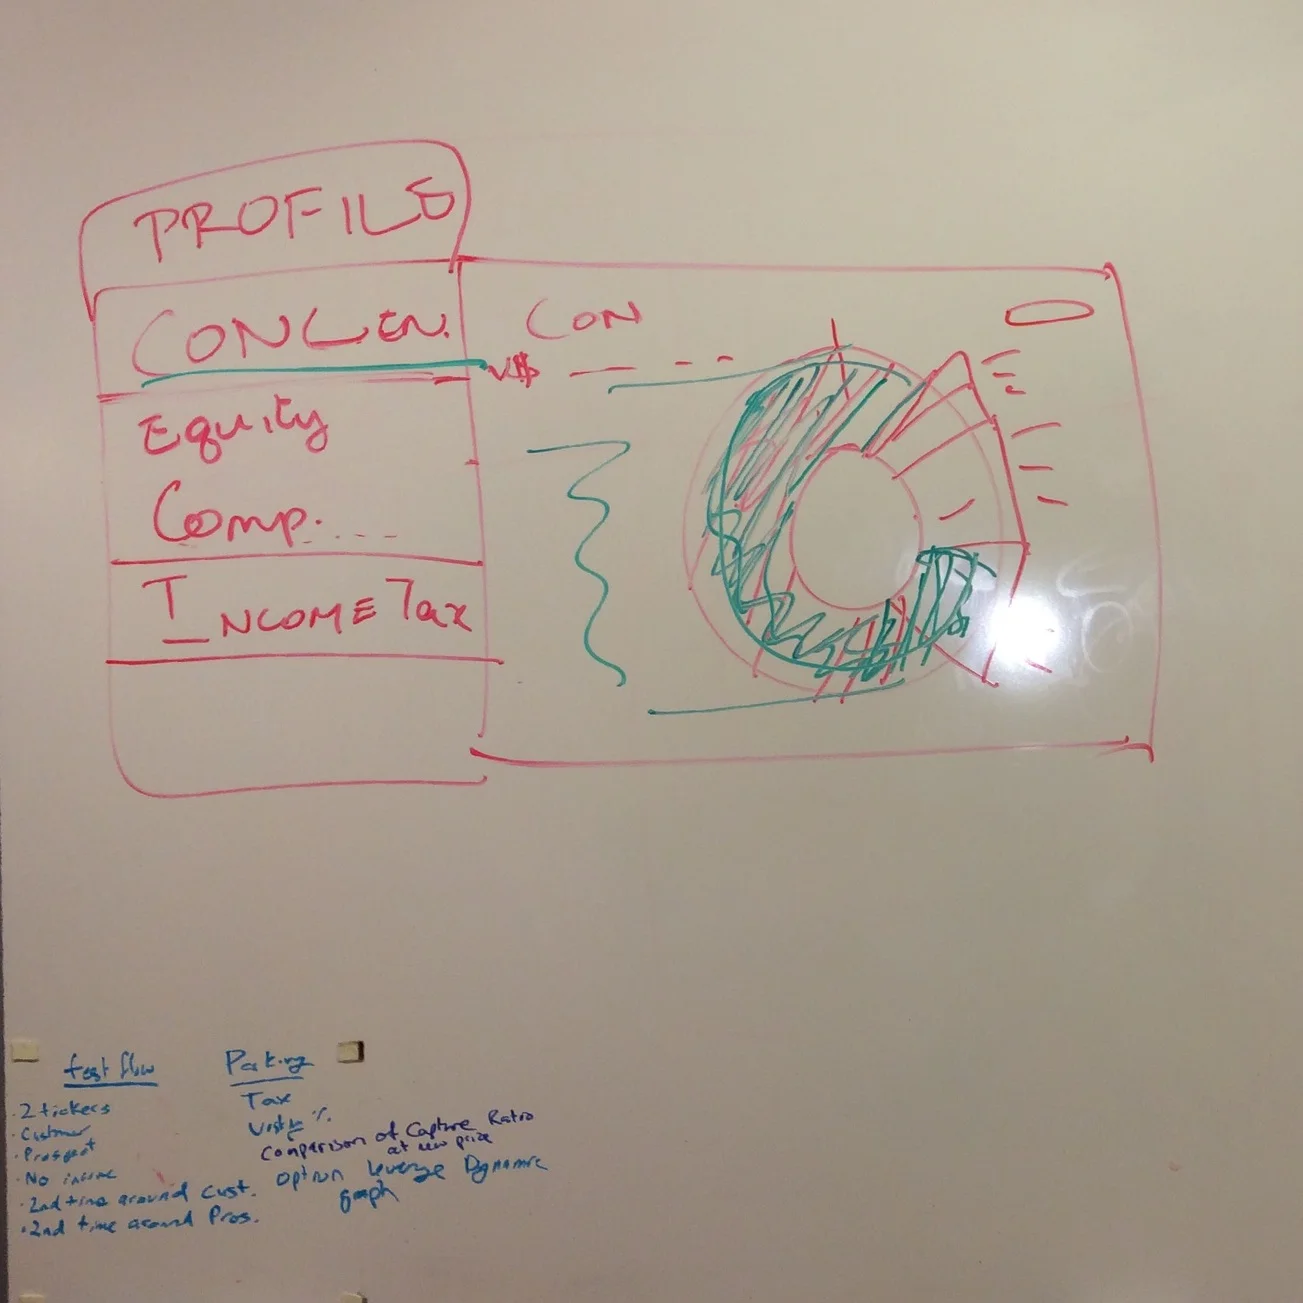 PROFILE
CONCEN.
Equity
Comp. . . . .
INCOME Tax
CON
test flow
· 2 tickers
· Customer
· Prospect
· No income
· 2nd time around Cust.
· 2nd time around Pros.
Parking
Tax
%
Comparison of Capture Ratio
at new price
option leverage Dynamic
graph